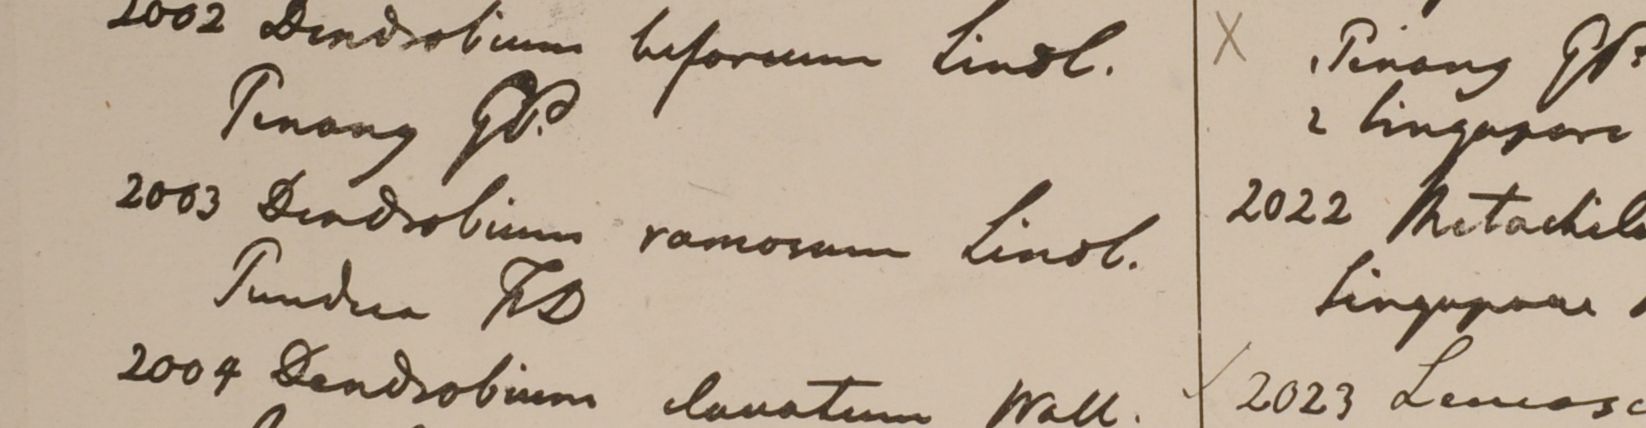 2002 Dendrobium biforeum Lindl.
Pinang GP.
2003 Dendrobium ramosum Lindl.
Pundua FD
2004 Dendrobium clavatum Wall.
X Pinang GP.
2 Singapore
2022 Metachil
Singapore
✓ 2023